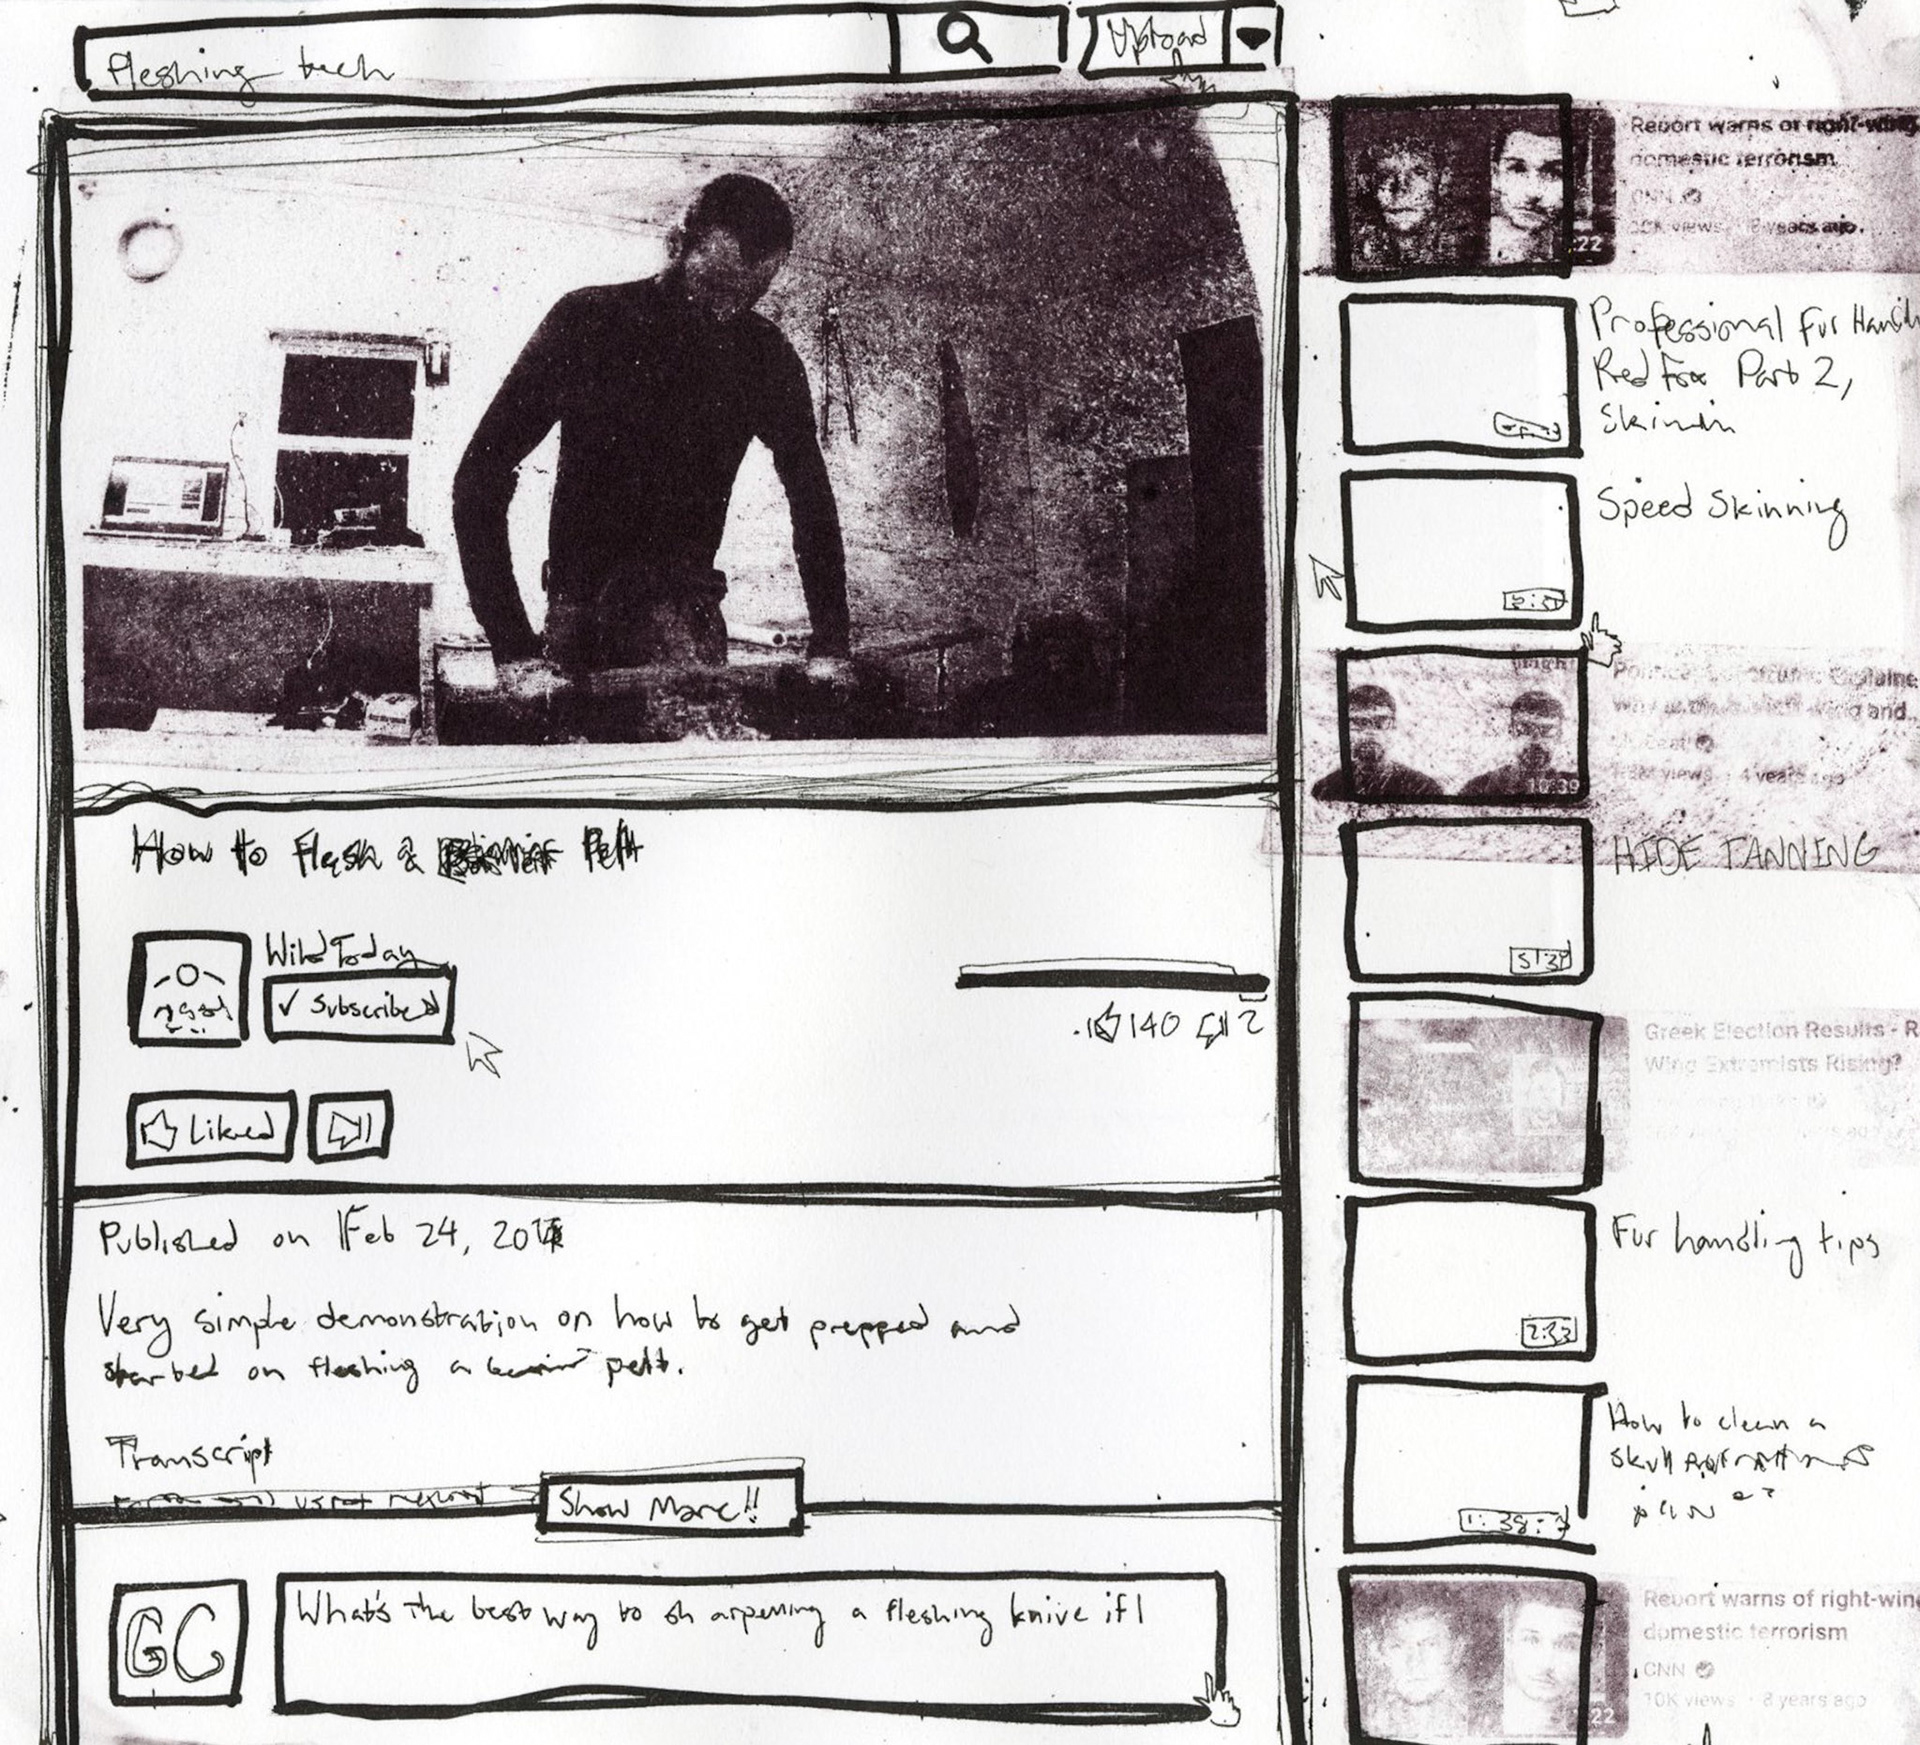 fleshing tech
Upload
How to Flesh a Pelt
Wild Today
✓ Subscribed
140 2
Liked
Published on Feb 24, 201
Very simple demonstration on how to get prepped and
started on fleshing a pelt.
Transcript
Show More!!
GC
What's the best way to sh arpening a fleshing knive if I
Report warns of right-wing
domestic terrorism
CNN
10K views 8 years ago
:22
Professional Fur Handlin
Red Fox Part 2,
Skinnin
Speed Skinning
Explaine
wing and..
views · 4 years ago
10:39
HIDE TANNING
5:39
Greek Election Results - R
Wing Extremists Rising?
Fur handling tips
2:33
How to clean a
skull
Report warns of right-wing
domestic terrorism
CNN
10K views · 8 years ago
:22